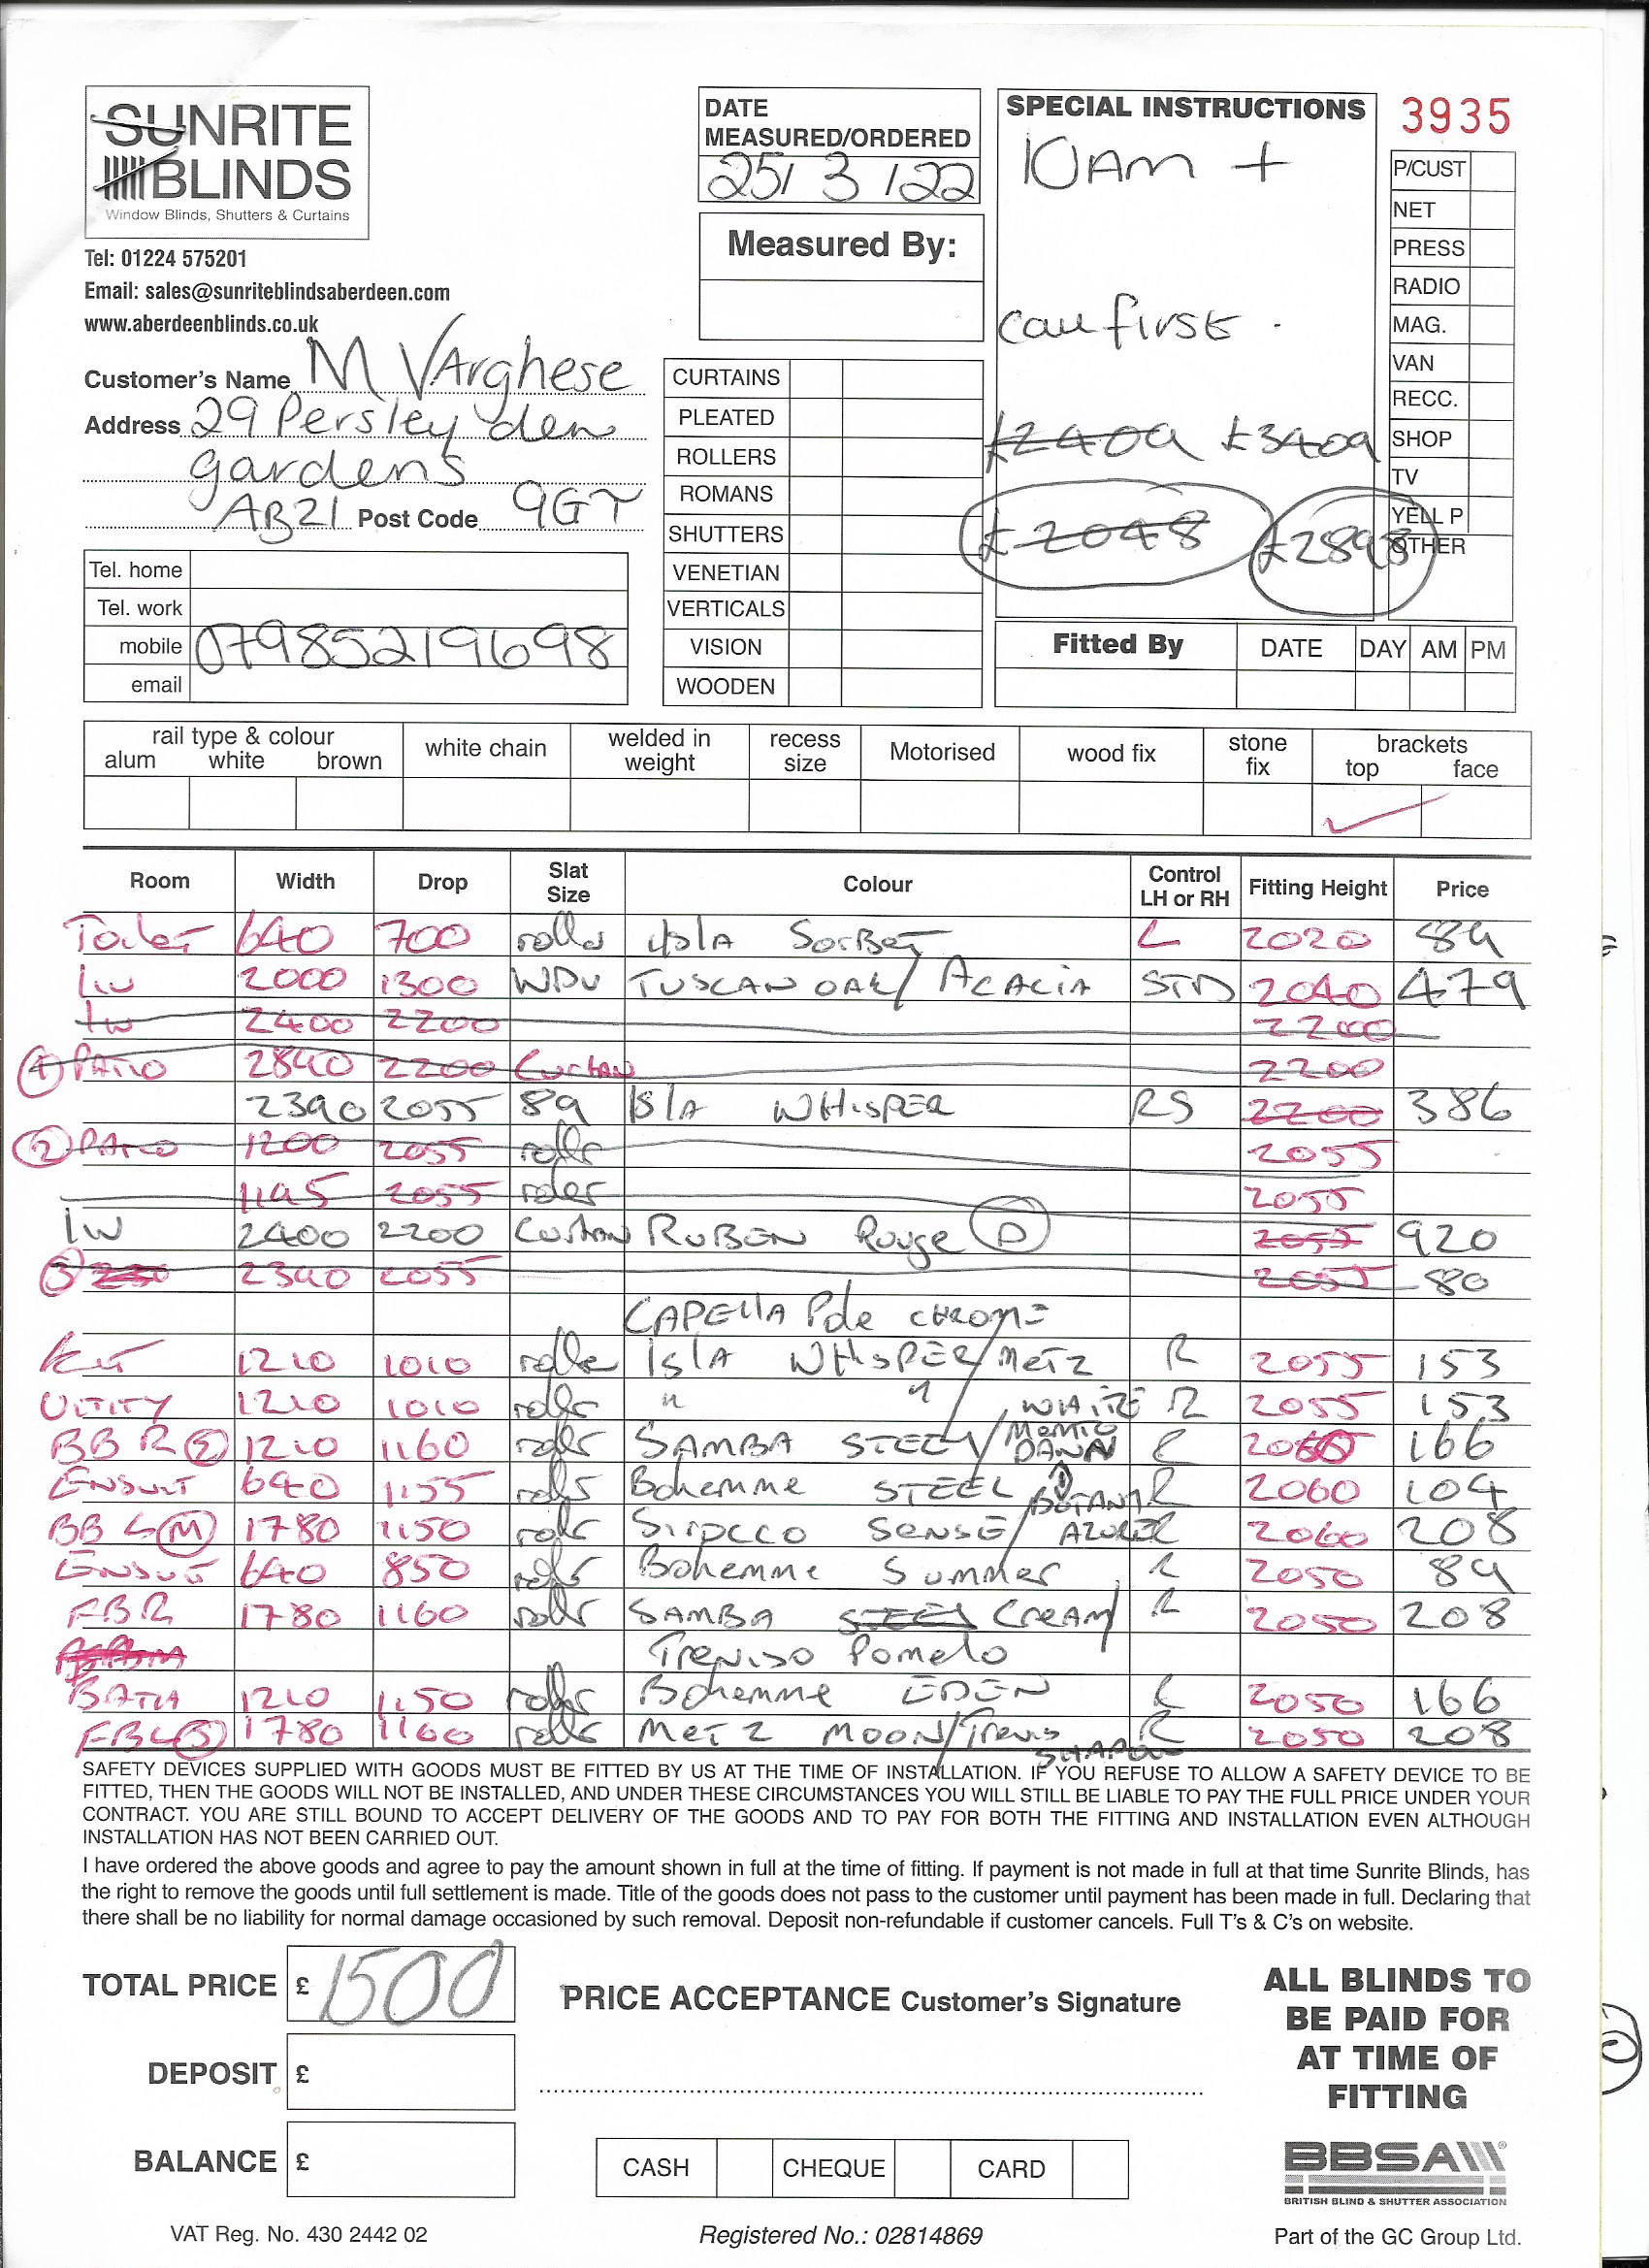 SUNRITE
BLINDS
Window Blinds, Shutters & Curtains
Tel: 01224 575201
Email: sales@sunriteblindsaberdeen.com
www.aberdeenblinds.co.uk
Customer's Name M VArghese
Address 29 Persley den
gardens
AB21 Post Code 9GT
Tel. home
Tel. work
mobile 07985219698
email
DATE
MEASURED/ORDERED
25/3/22
Measured By:
CURTAINS
PLEATED
ROLLERS
ROMANS
SHUTTERS
VENETIAN
VERTICALS
VISION
WOODEN
SPECIAL INSTRUCTIONS
10AM +
Call first.
£2409 £3409
£2048 £2898
3935
P/CUST
NET
PRESS
RADIO
MAG.
VAN
RECC.
SHOP
TV
YELL P
OTHER
Fitted By DATE DAY AM PM
rail type & colour
alum white brown
white chain
welded in weight
recess size
Motorised
wood fix
stone fix
brackets
top face
Room Width Drop Slat Size Colour Control LH or RH Fitting Height Price
Toilet 640 700 roller Isla Sorbet L 2020 89
Liv 2000 1300 WDV TUSCAN OAK/ ACACIA STD 2040 479
2400 2200 2200
1 PATIO 2840 2200 Curtan 2200
2390 2055 89 ISlA WHISPER RS 2200 386
2 PATIO 1200 2055 roller 2055
1195 2055 roler 2055
2400 2200 Curtan RUBEN Rouge D 2055 920
3 2390 2055 2055 80
CAPELLA Pole CHROME
Kit 1210 1010 roller ISlA WHISPER/METZ R 2055 153
UTITY 1210 1010 roller " " / WHITE R 2055 153
BB R 2 1210 1160 roller SAMBA STEEL/ DAWN R 166
ENSUIT 640 1155 roller Bohemme STEEL BOTANY R 2060 104
BB L M 1780 1150 roller Sirocco SENSE/ AZURE R 2060 208
ENSUIT 640 850 roller Bohemme Summer R 2050 89
FBR 1780 1160 roller SAMBA STEEL CREAM/ R 2050 208
Treviso Pomelo
BATH 1210 1150 roller Bohemme EDEN R 2050 166
FBL 3 1780 1160 roller METZ MOON/Trevis R 2050 208
SHADOW
SAFETY DEVICES SUPPLIED WITH GOODS MUST BE FITTED BY US AT THE TIME OF INSTALLATION. IF YOU REFUSE TO ALLOW A SAFETY DEVICE TO BE
FITTED, THEN THE GOODS WILL NOT BE INSTALLED, AND UNDER THESE CIRCUMSTANCES YOU WILL STILL BE LIABLE TO PAY THE FULL PRICE UNDER YOUR
CONTRACT. YOU ARE STILL BOUND TO ACCEPT DELIVERY OF THE GOODS AND TO PAY FOR BOTH THE FITTING AND INSTALLATION EVEN ALTHOUGH
INSTALLATION HAS NOT BEEN CARRIED OUT.
I have ordered the above goods and agree to pay the amount shown in full at the time of fitting. If payment is not made in full at that time Sunrite Blinds, has
the right to remove the goods until full settlement is made. Title of the goods does not pass to the customer until payment has been made in full. Declaring that
there shall be no liability for normal damage occasioned by such removal. Deposit non-refundable if customer cancels. Full T's & C's on website.
TOTAL PRICE £ 1500
DEPOSIT £
BALANCE £
PRICE ACCEPTANCE Customer's Signature
CASH CHEQUE CARD
ALL BLINDS TO
BE PAID FOR
AT TIME OF
FITTING
BBSA
BRITISH BLIND & SHUTTER ASSOCIATION
VAT Reg. No. 430 2442 02
Registered No.: 02814869
Part of the GC Group Ltd.